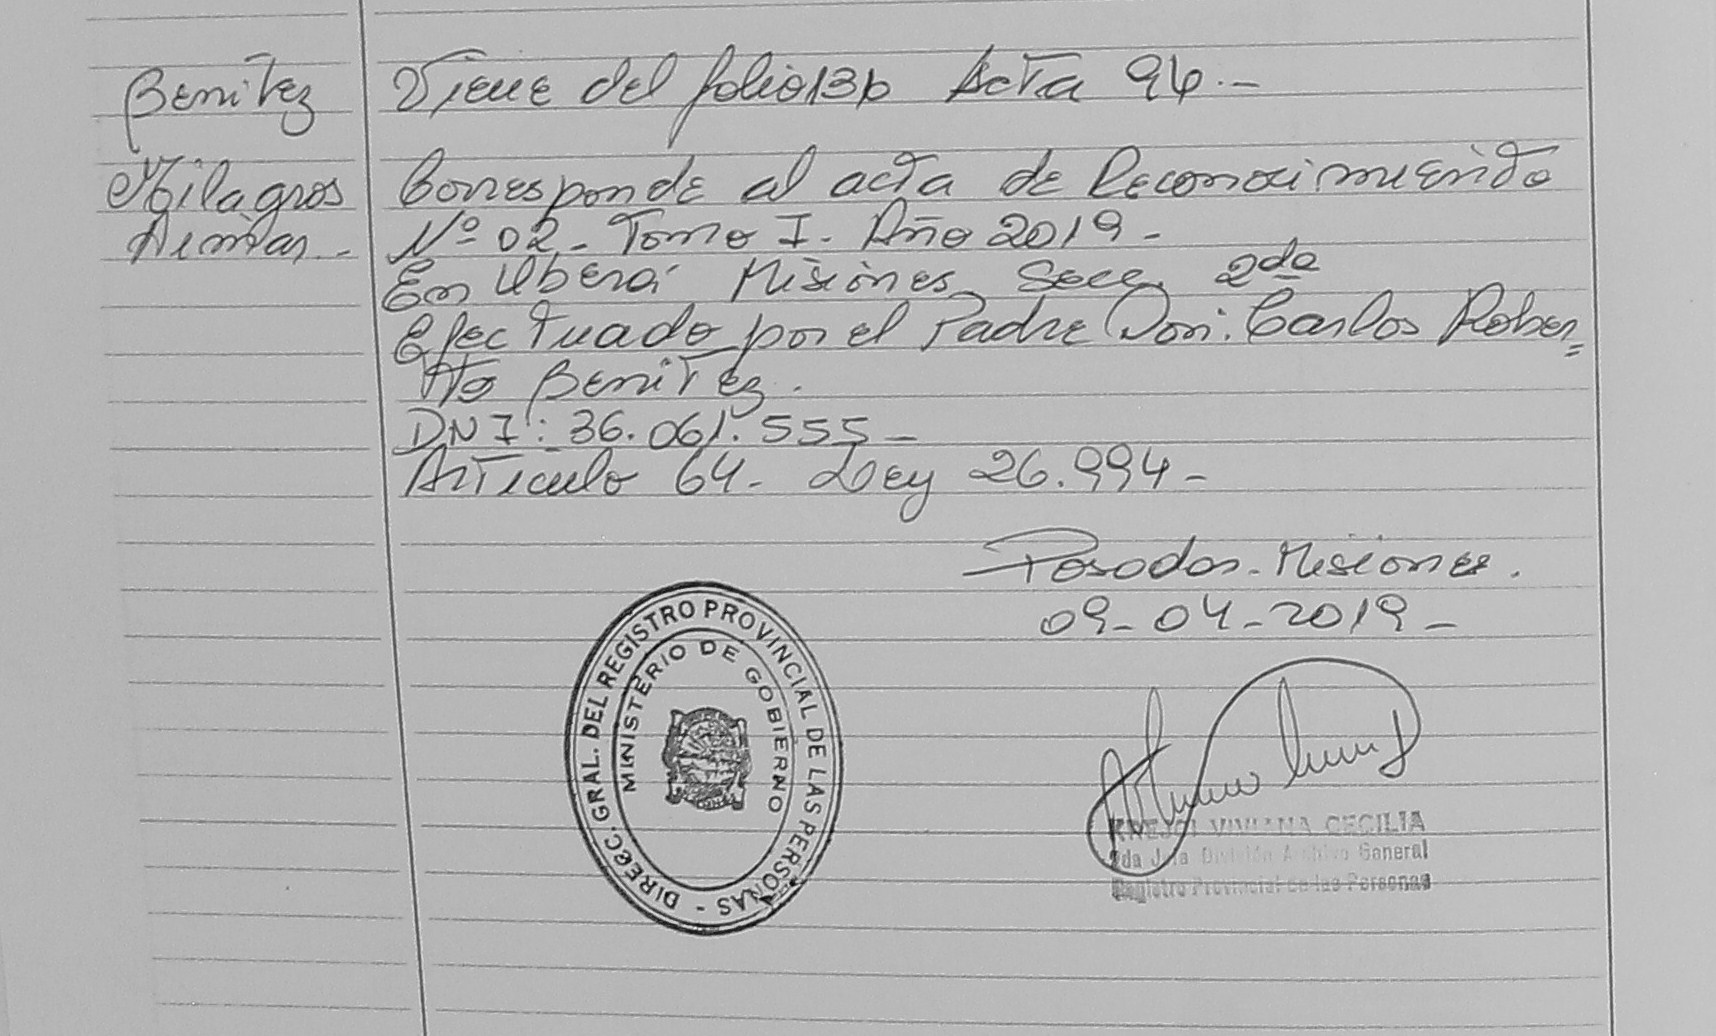 Benitez
Milagros
Viene del folio 136 Acta 94.-
Corresponde al acta de Reconocimiento
Nº 02 - Tomo I. Año 2019 -
En Oberá Misiones Secc. 2da
Efectuado por el Padre Don: Carlos Rober=
tto Benitez.
DNI: 36.061.555 -
Artículo 64 - Ley 26.994 -
Posadas - Misiones.
09 - 04 - 2019 -
DIRECC. GRAL. DEL REGISTRO PROVINCIAL DE LAS PERSONAS -
MINISTERIO DE GOBIERNO
KREJCI VIVIANA CECILIA
2da Jefa División Archivo General
Registro Provincial de las Personas